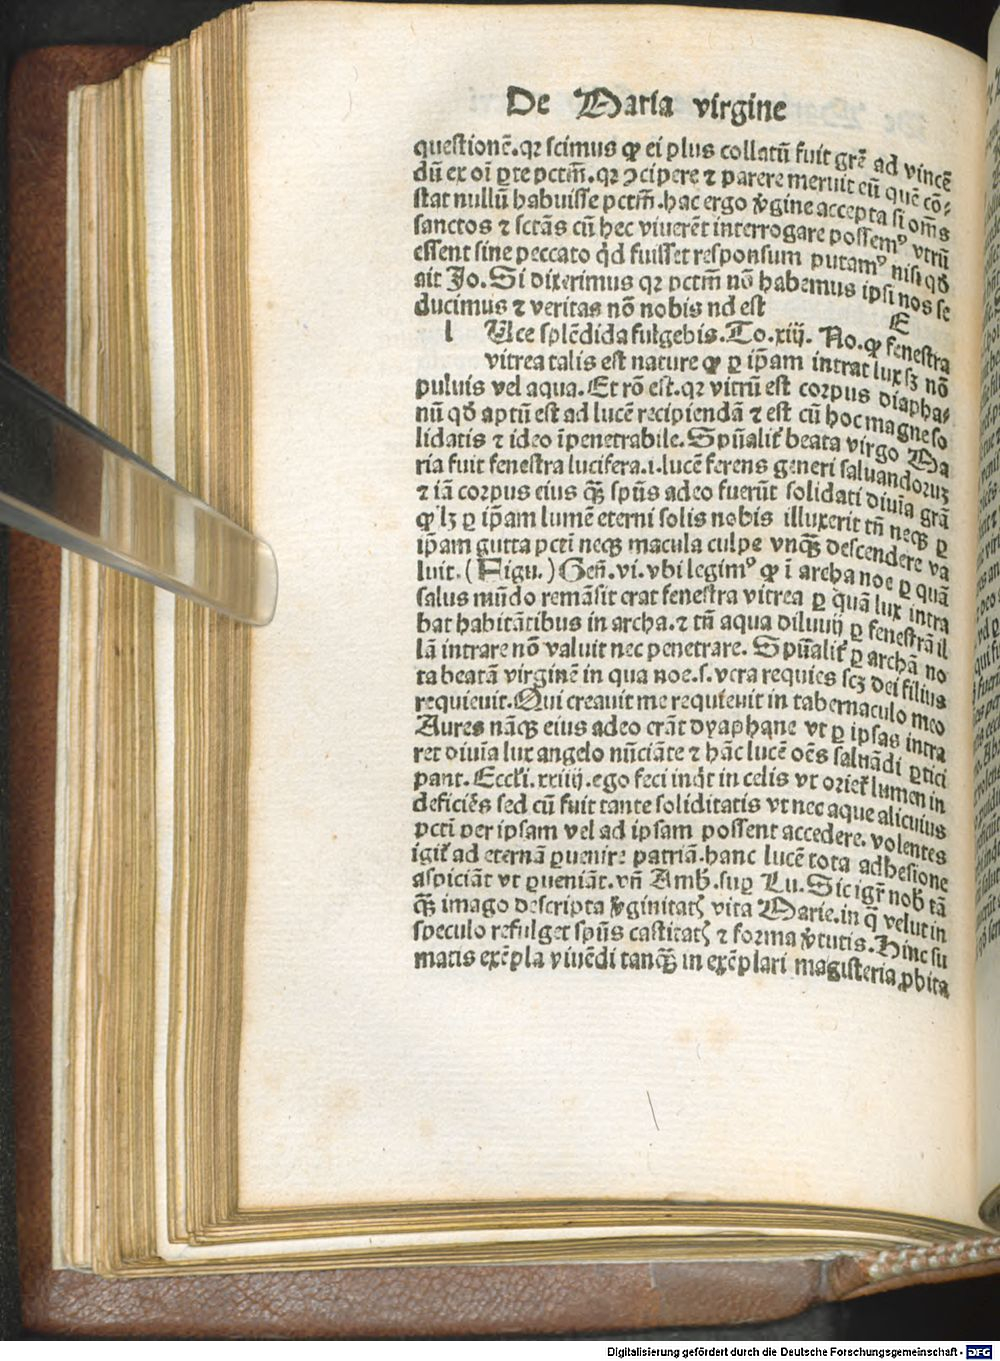 De Maria virgine
questionē.qꝛ scimus ꝙ ei plus collatū fuit grē ad vincē
dū ex oī ꝑte pctm̄.qꝛ ↄcipere ⁊ parere meruit eū quē cō-
stat nullū habuisse pctm̄.hac ergo v̓gine accepta si om̄s
sanctos ⁊ sctās cū hec viuerēt interrogare possemꝰ vtrū
essent sine peccato qd̓ fuisset responsum putamꝰ nisi qḋ
ait Jo.Si dixerimus qꝛ pctm̄ nō habemus ipsi nos se
ducimus ⁊ veritas nō nobis nd est
E
l Uce splēdida fulgebis.To.xiij. No.ꝙ fenestra
vitrea talis est nature ꝙ ꝑ ip̄am intrat lux sꝫ nō
puluis vel aqua.Et rō est.qꝛ vitrū est corpus diapha-
nū qḋ aptū est ad lucē recipiendā ⁊ est cū hoc magne so
lidatis ⁊ ideo īpenetrabile.Spūalit̓ beata virgo Ma
ria fuit fenestra lucifera.i.lucē ferens generi saluandoruꝫ
⁊ iā corpus eius qꝫ̄ spūs adeo fuerūt solidati diuīa grā
ꝙ lꝫ ꝑ ip̄am lumē eterni solis nobis illuxerit tn̄ neqꝫ ꝑ
ip̄am gutta pctī neqꝫ macula culpe vnqꝫ̄ descendere va
luit.(Figu.)Geñ.vi.vbi legimꝰ ꝙ ī archa noe ꝑ quā
salus mūdo remāsit erat fenestra vitrea ꝑ quā lux intra
bat habitātibus in archa.⁊ tn̄ aqua diluuij ꝑ fenestrā il
lā intrare nō valuit nec penetrare. Spūalit̓ ꝑ archā no
ta beatā virginē in qua noe.s.vera requies scꝫ dei filius
requieuit.Qui creauit me requieuit in tabernaculo meo
Aures nāqꝫ eius adeo erāt dyaphane vt ꝑ ipsas intra
ret diuīa lux angelo nūciāte ⁊ hāc lucē oēs saluādi ꝑtici
pant. Eccl̓i.xxiiij.ego feci inq̄t in celis vt oriet̓ lumen in
deficiēs sed cū fuit tante soliditatis vt nec aque alicuius
pctī per ipsam vel ad ipsam possent accedere. volentes
igit̓ ad eternā ꝑuenire patriā.hanc lucē tota adhesione
aspiciāt vt ꝑueniāt.vn̄ Amb̓.suꝑ Lu.Sic igr̄ nob̓ tā
qꝫ̄ imago descripta v̓ginitatꝭ vita Marie.in q̄ velut in
speculo refulget spūs castitatꝭ ⁊ forma v̓tutis.Hinc su
matis exēpla viuēdi tanqꝫ̄ in exēplari magisteria ꝓbita
Digitalisierung gefördert durch die Deutsche Forschungsgemeinschaft - DFG